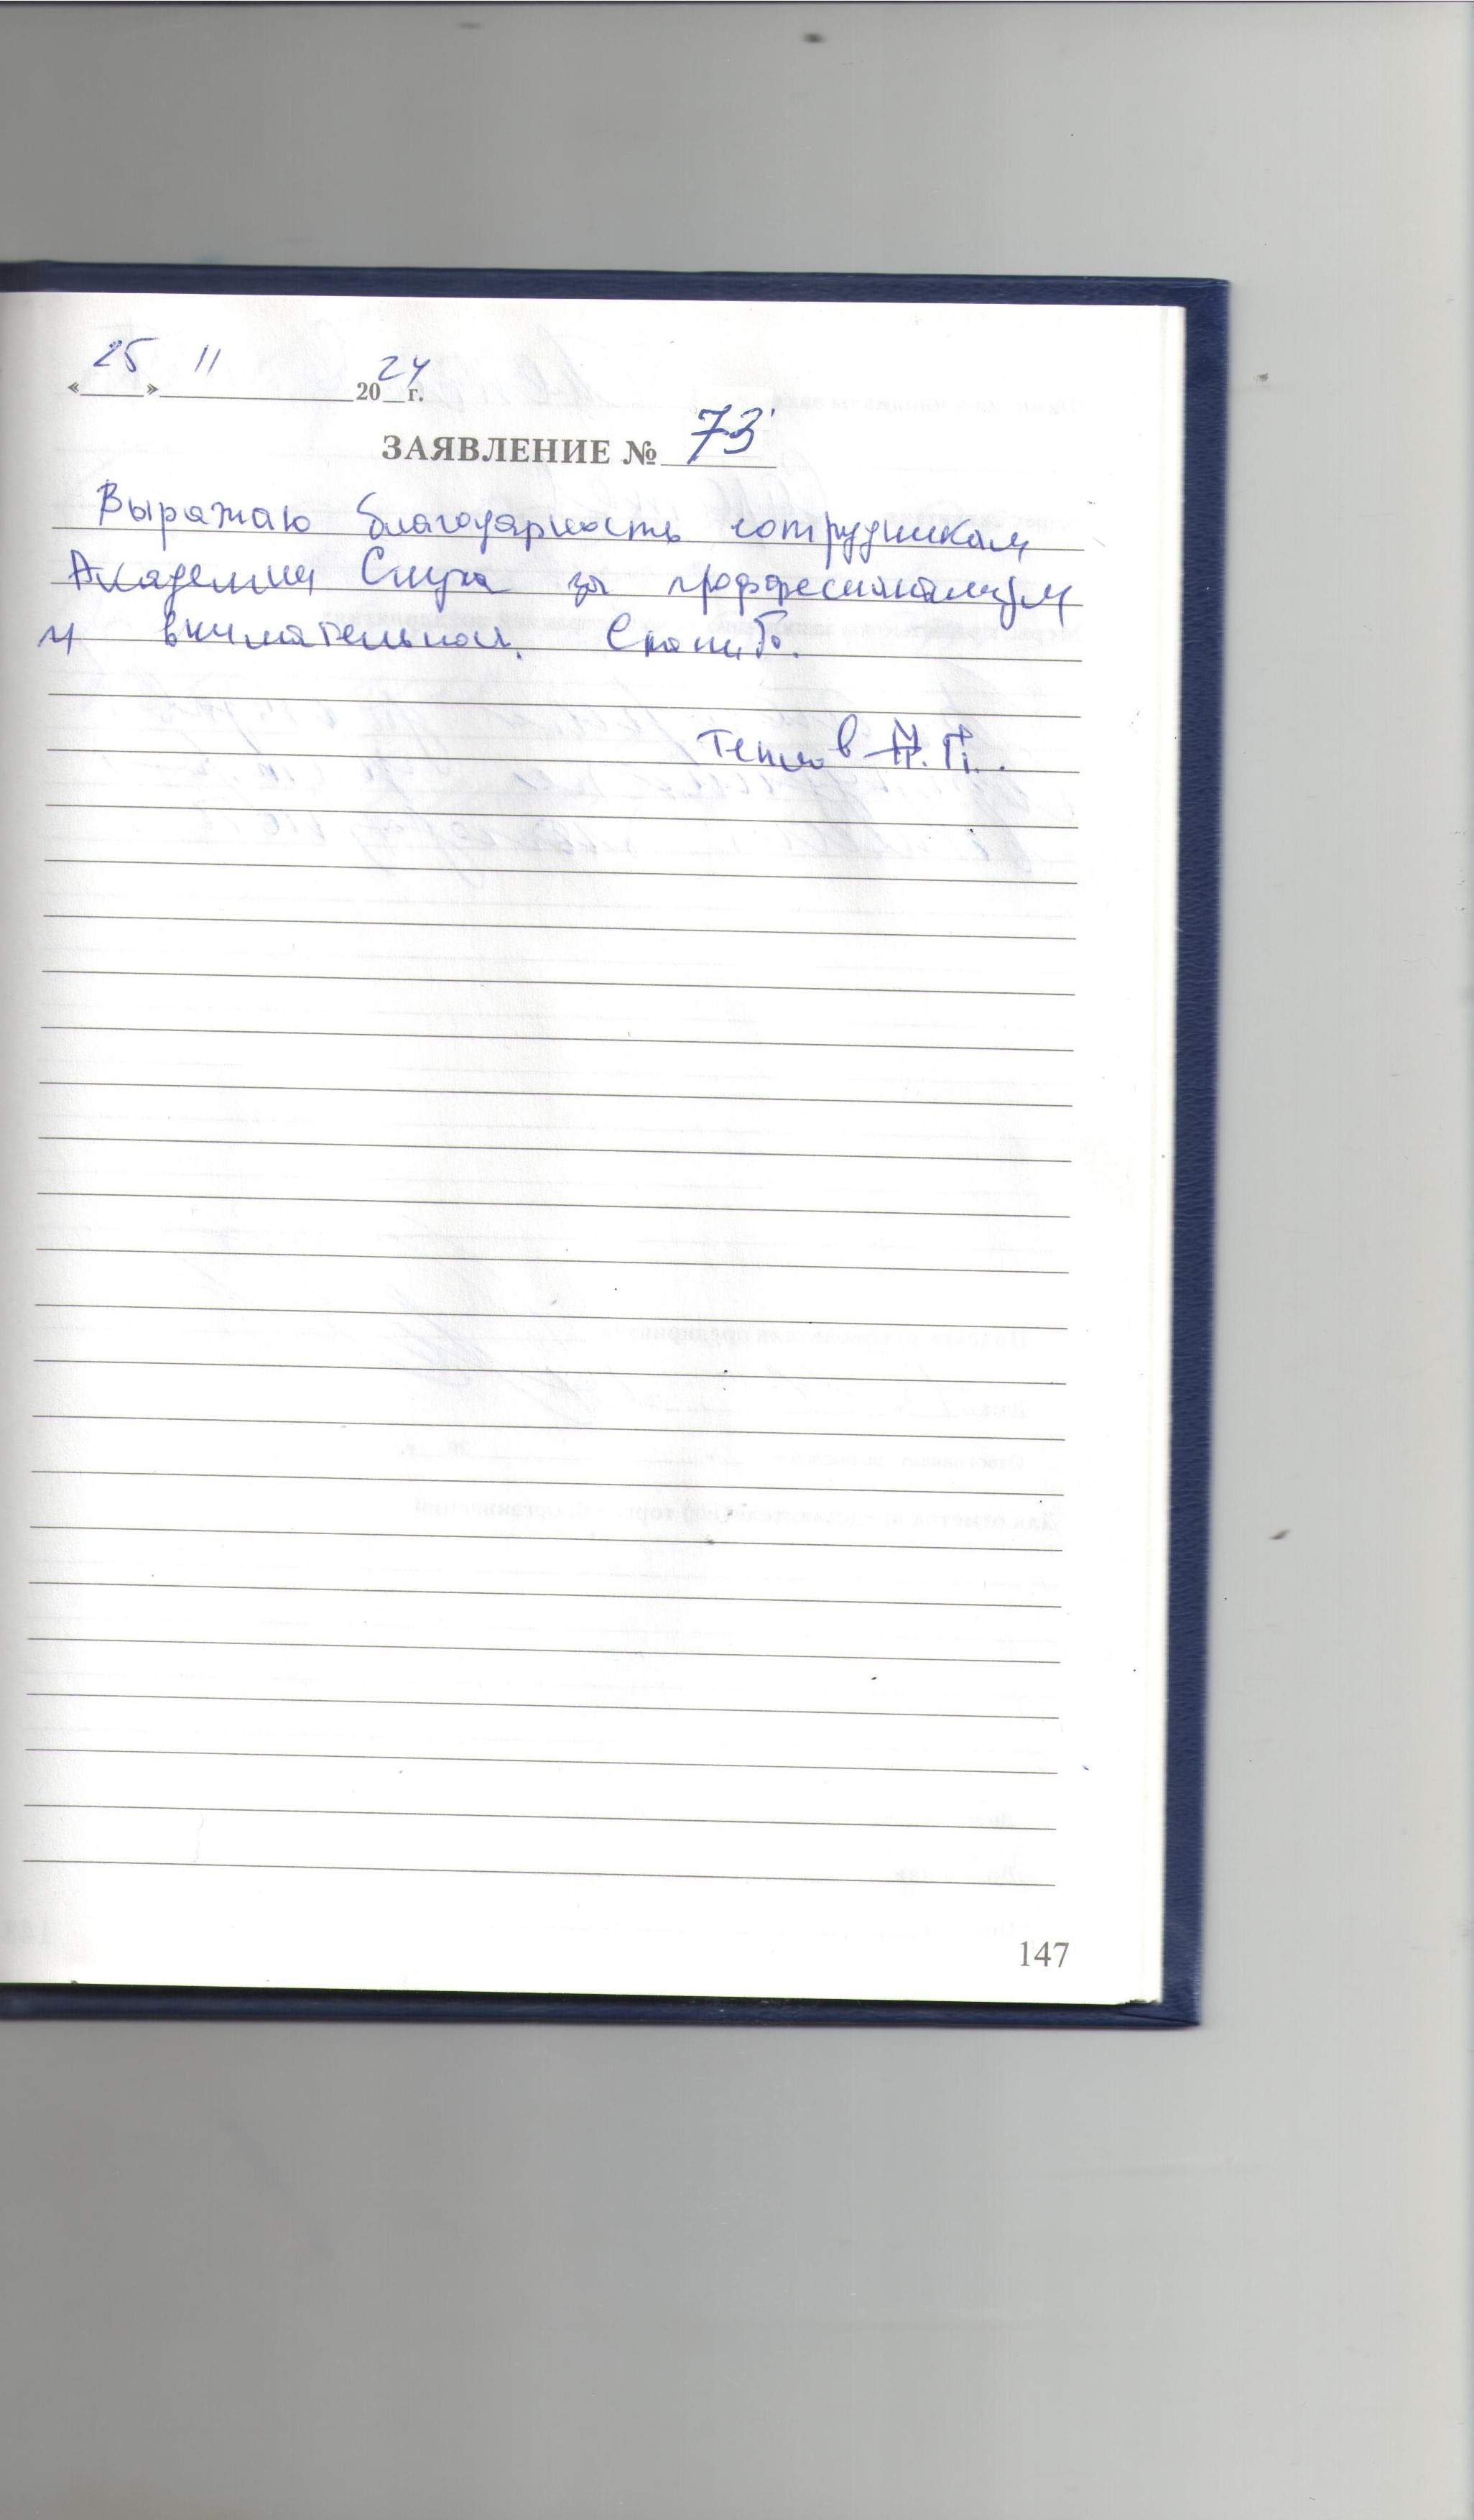 «25» 11 2024 г.
ЗАЯВЛЕНИЕ № 73
Выражаю благодарность сотрудникам
Академии Слуха за профессионализм
и внимательность. Спасибо.
Теплов П.
147